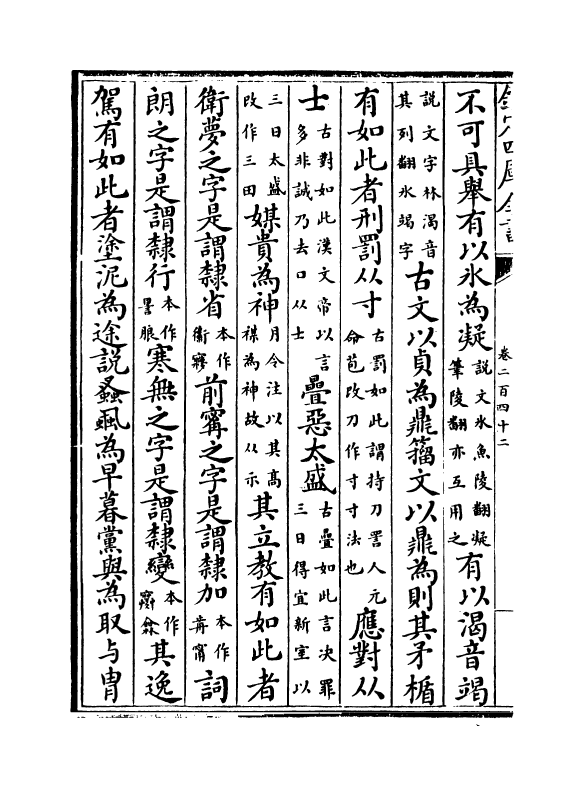 欽定四庫全書
卷二百四十二
不可具舉有以氷為凝説文氷魚陵翻凝筆陵翻亦互用之有以渴音竭
説文字林渴音其列翻水竭字古文以貞為鼎籀文以鼎為則其矛楯
有如此者刑罰从寸古罰如此謂持刀詈人元命苞改刀作寸寸法也應對从
士古對如此漢文帝以言多非誠乃去口从士疊惡太盛古疊如此言决罪三日得宜新室以
三日太盛改作三田媒貴為神月令注以其髙禖為神故从示其立教有如此者
衛夢之字是謂隸省本作𧗿㝱前寗之字是謂隸加本作歬甯詞
朗之字是謂隸行本作朖寒無之字是謂隸變本作其逸
駕有如此者塗泥為途説蚤虱為早暮黨與為取与胄